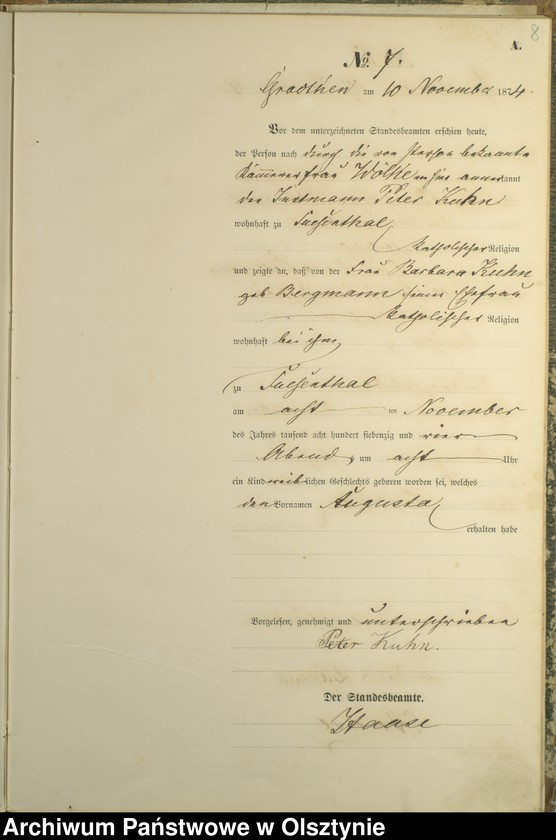 8
A.
No. 7.
Groothen am 10 November 1874.
Vor dem unterzeichneten Standesbeamten erschien heute,
der Person nach durch die von Person bekannte
Kämmererfrau Wölke anerkannt
der Instmann Peter Kuhn
wohnhaft zu
katholischer Religion
und zeigte an, daß von der Frau Barbara Kuhn
geb Bergmann seiner Ehefrau
katholischer Religion
wohnhaft bei ihm
zu
am acht ten November
des Jahres tausend acht hundert siebenzig und vier
Abends um acht Uhr
ein Kind weiblichen Geschlechts geboren worden sei, welches
den Vornamen Augusta
erhalten habe
Vorgelesen, genehmigt und unterschrieben
Peter Kuhn.
Der Standesbeamte.
Haase
Archiwum Państwowe w Olsztynie